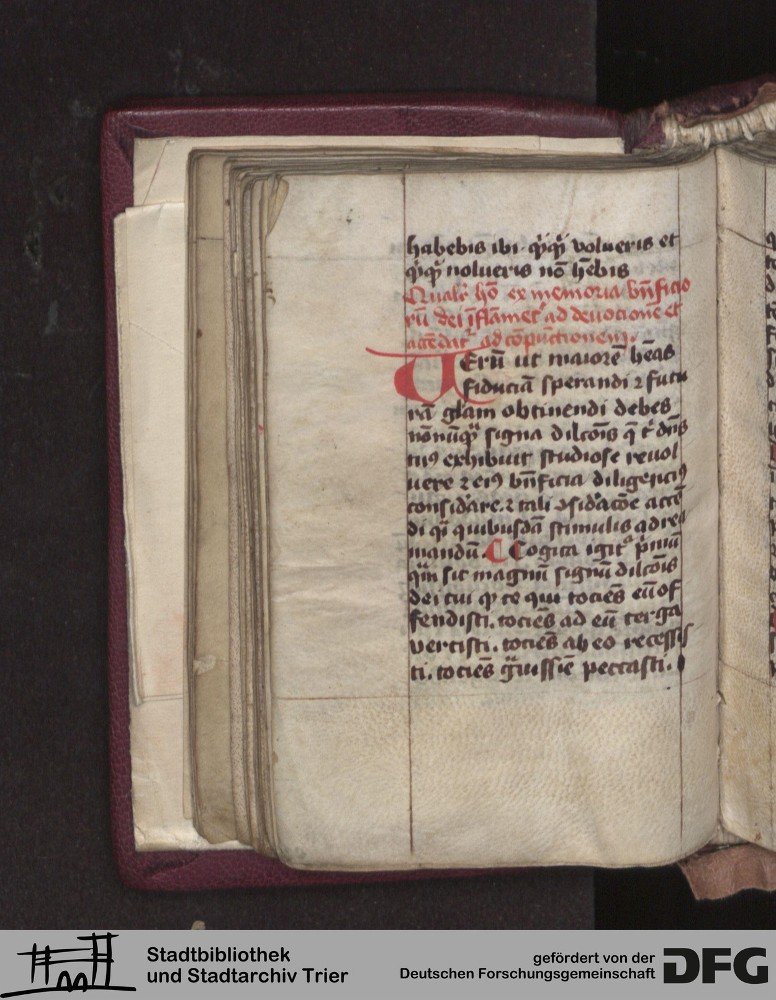 habebis ibi. qͥcqͥd volueris et
qͥcqͥd nolueris nō hēbis
Qualr̄ hō ex memoria bn̄ficio
rū dei īflāmetʳ ad deuocionē et
accēdatʳ ad cōpūctionem.
Uerū ut maiorē hēas
fiduciā sperandi ⁊ futu
rā glām obtinendi debes
nōnūqͣꝫ signa dilcōīs q̄ tͥ dn̄s
tuꝰ exhibuit studiose reuol
uere ⁊ eiꝰ bn̄ficia diligenciꝰ
considᷓare. ⁊ tali ꝯsidᷓacōe accē
di qͣi quibusdā stimulis ad re
mandū. Cogita igitʳ pͥmū
qͣm sit magnū signū dilcōīs
dei tui qꝫ te qui tociēs eū of
fendisti. tociēs ad eū terga
vertisti. tociēs ab eo recessis
ti. tociēs gͣuissīe peccasti.
Stadtbibliothek
und Stadtarchiv Trier
gefördert von der
Deutschen Forschungsgemeinschaft
DFG